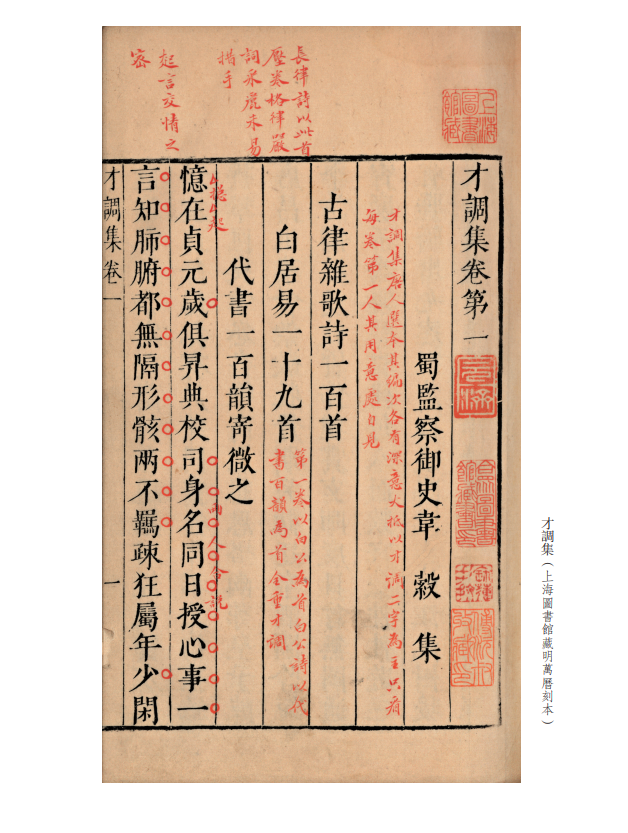 才調集卷第一
蜀監察御史韋縠集
才調集唐人選本其編次各有深意大抵以才調二字為主只看
每卷第一人其用意處自見
古律雜歌詩一百首
白居易一十九首
第一卷以白公為首白公詩以代
書百韻為首全重才調
代書一百韻寄微之
長律詩以此首
壓卷格律嚴
詞采麗未易
措手
憶在貞元歲俱昇典校司身名同日授心事一
兩人合說
起言交情之
密
言知肺腑都無隔形骸两不羈疎狂屬年少閑
才調集卷一
一
上海圖書館藏
才調集（上海圖書館藏明萬曆刻本）